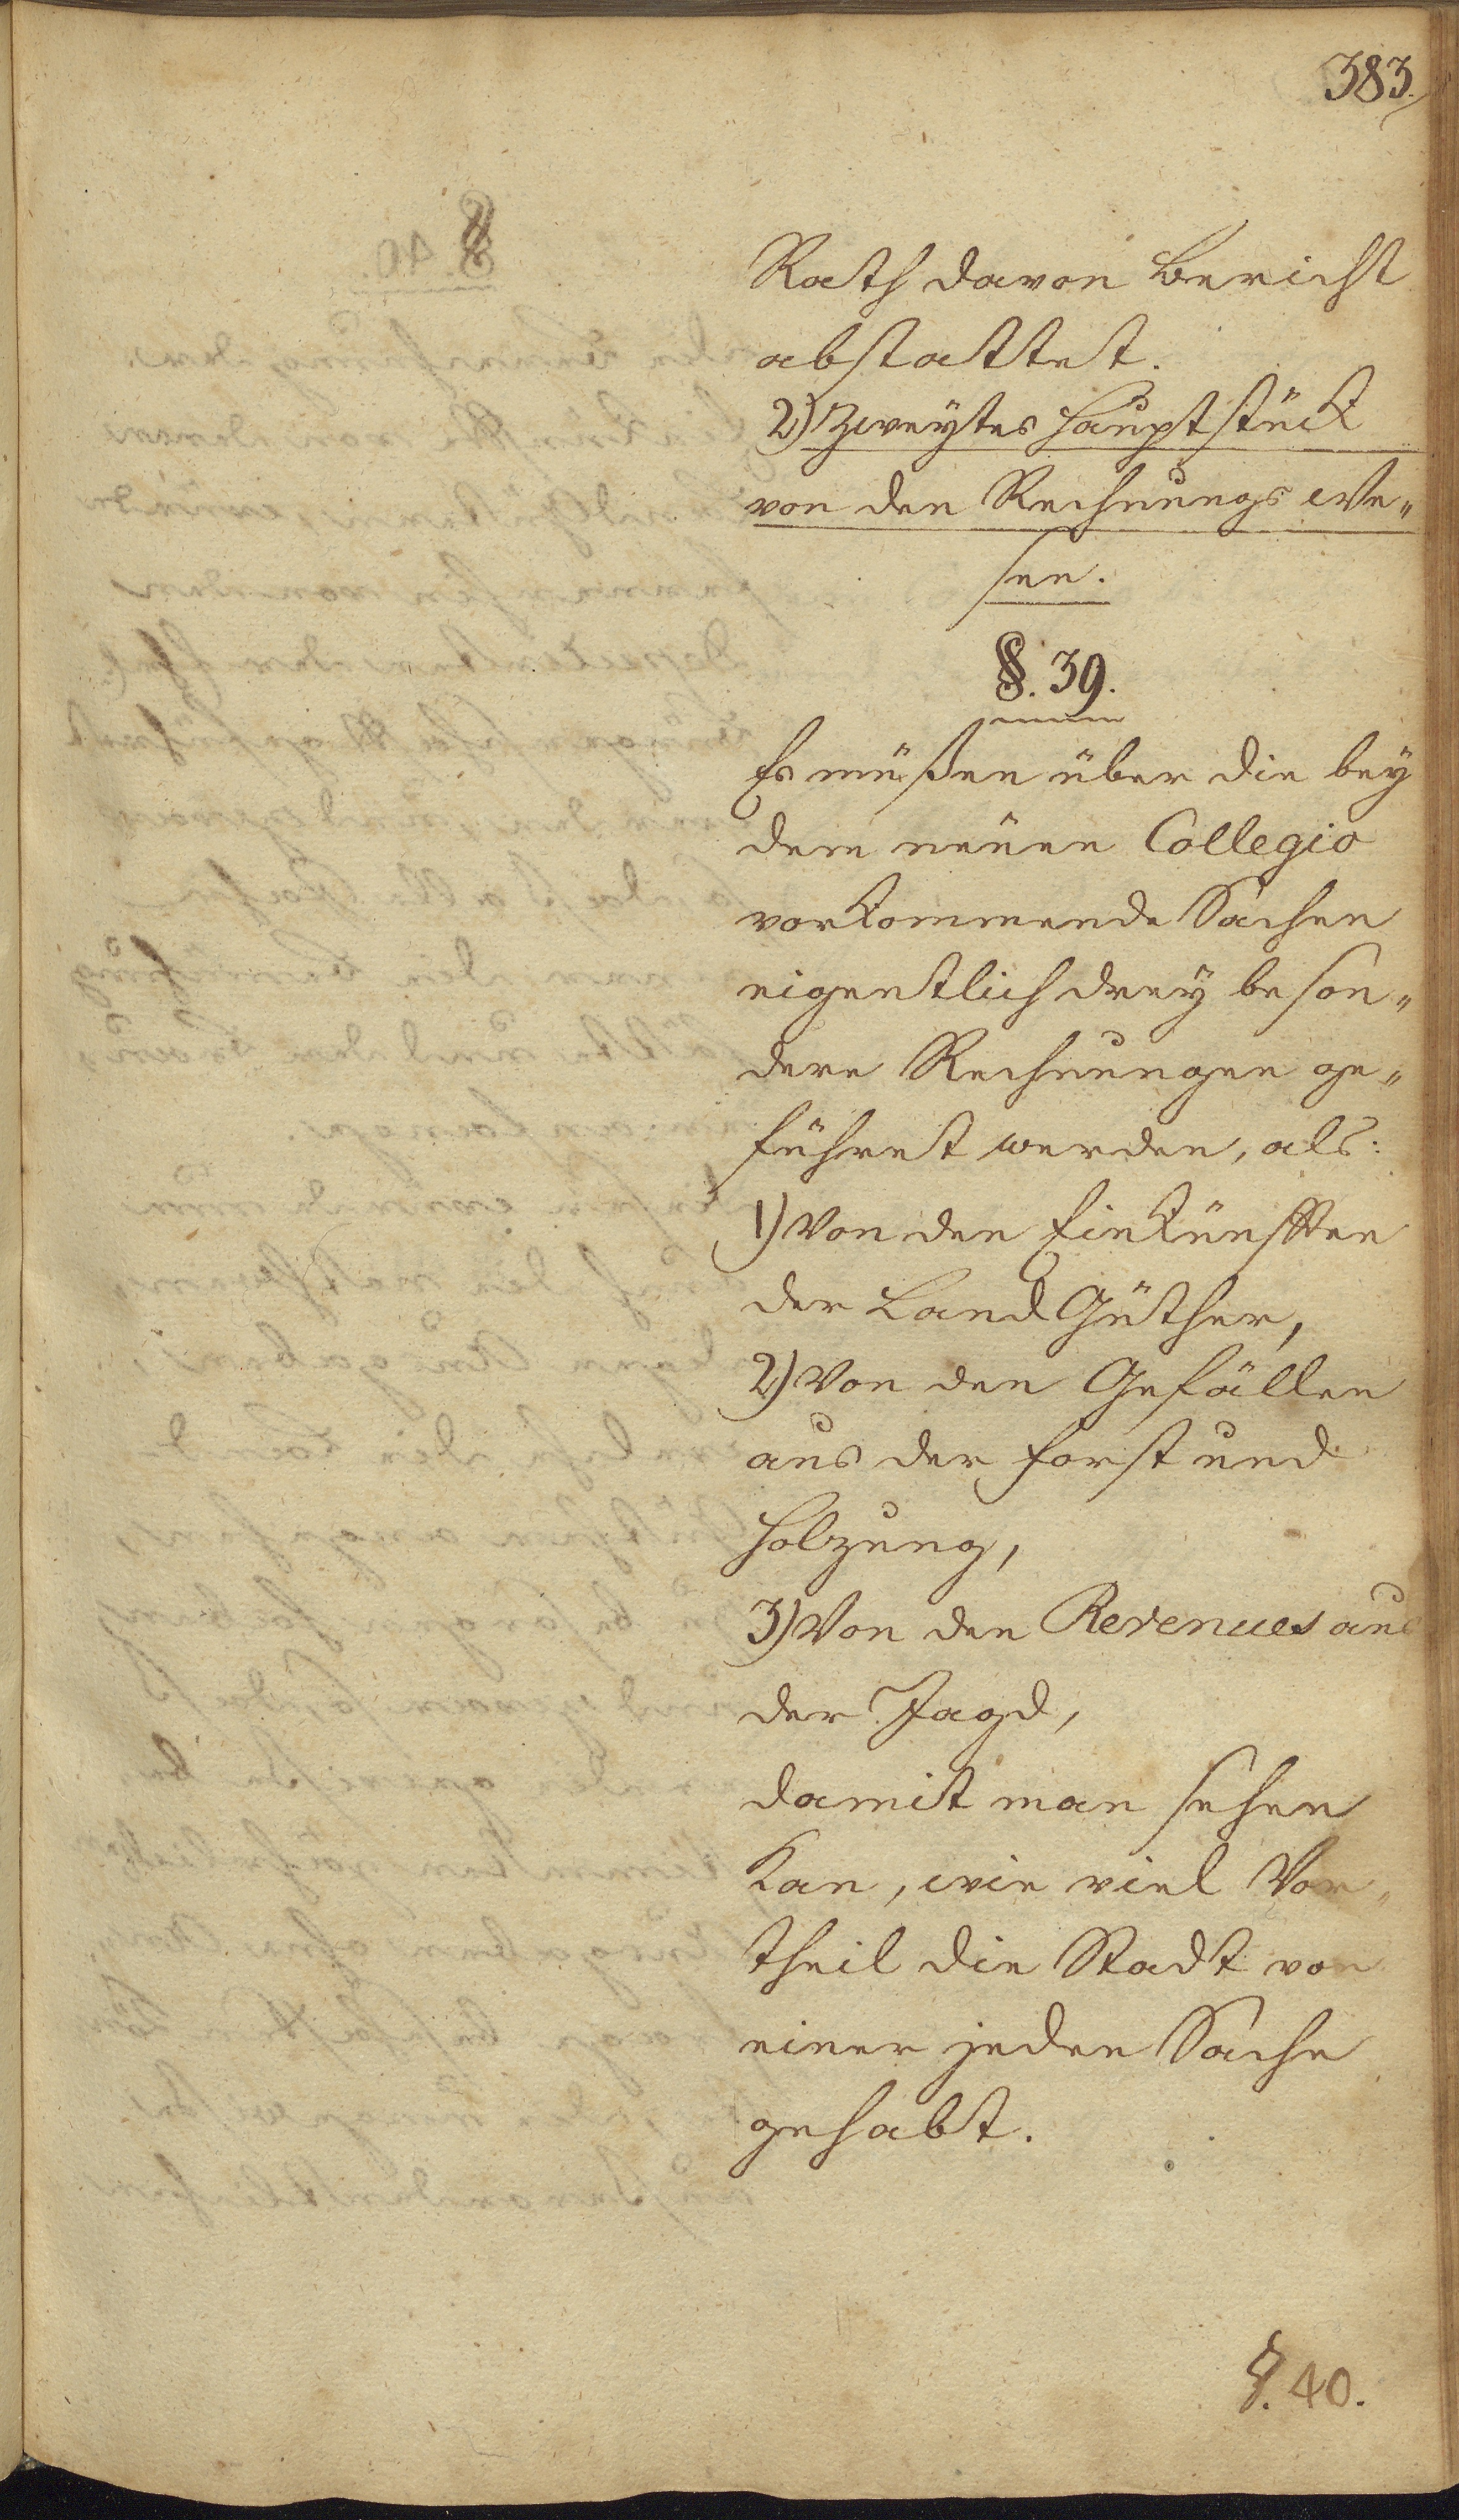 383.
Rath davon Bericht
abstattet.
2) Zweytes Hauptstück
von den Rechnungs We„
sen.
§. 39.
Es müßen über die bey
dem neuen Collegio
vorkommende Sachen
eigentlich drey beson„
dere Rechnungen ge„
führet werden, als:
1) Von den Einkünfften
der Land Güther,
2) Von den Gefällen
aus der Forst und
Holzung,
3) Von den Revenues aus
der Jagd,
damit man sehen
kan, wie viel Vor„
theil die Stadt von
einer jeden Sache
gehabt.
§. 40.